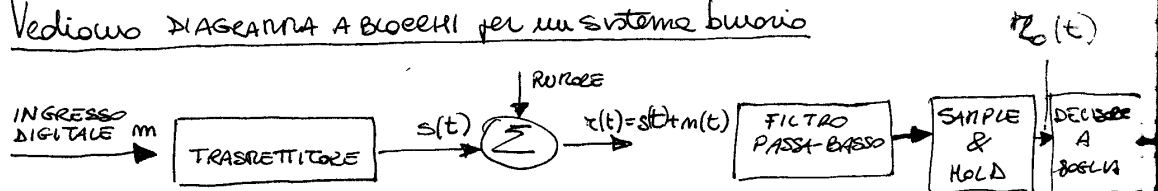 Vediamo DIAGRAMMA A BLOCCHI per un sistema binario
r₀(t)
RUMORE
INGRESSO
DIGITALE m
TRASMETTITORE
s(t)
Σ
r(t)=s(t)+n(t)
FILTRO
PASSA-BASSO
SAMPLE
&
HOLD
DECISORE
A
SOGLIA